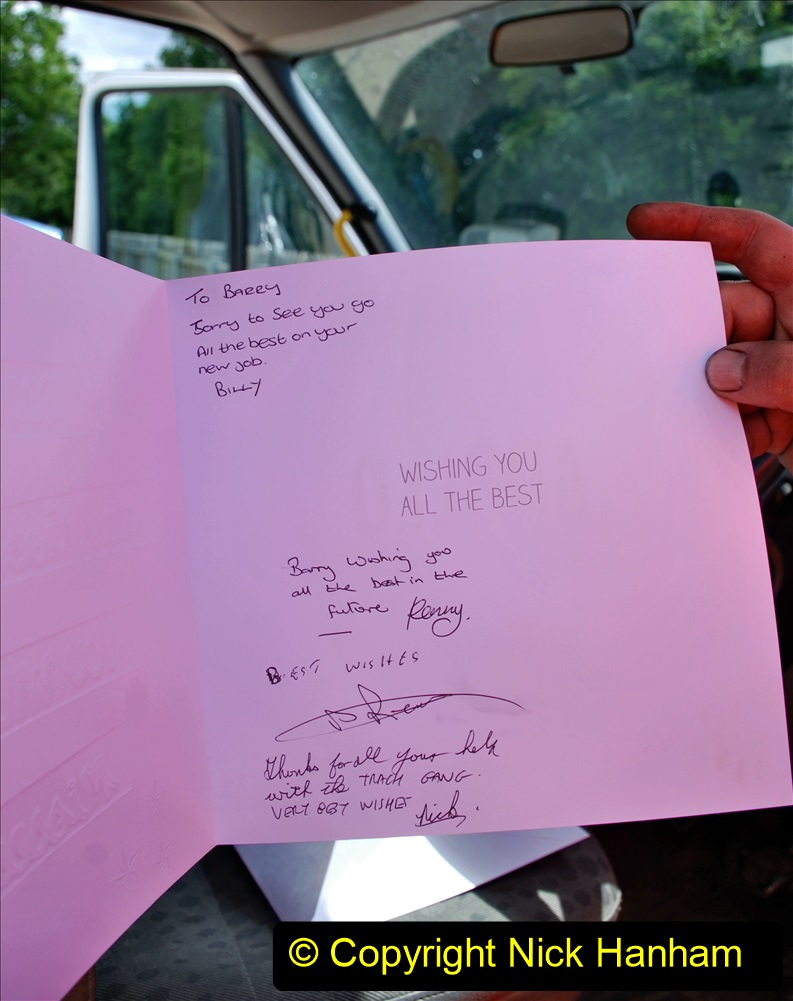 To BARRY
Sorry to see you go
All the best on your
new job.
BILLY
WISHING YOU
ALL THE BEST
Barry Wishing you
all the best in the
future Kenny.
BEST WISHES
Thanks for all your help
with the TRACK GANG.
VERY BEST WISHES Nick.
© Copyright Nick Hanham